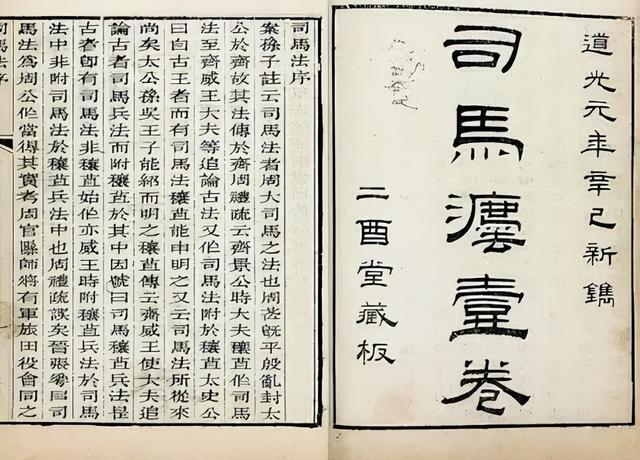 道光元年辛巳新鐫
司馬灋壹卷
二酉堂藏板
司馬法序
案孫子註云司馬法者周大司馬之法也周武既平殷亂封太
公於齊故其法傳於齊周禮疏云齊景公時大夫穰苴作司馬
法至齊威王大夫等追論古法又作司馬法附於穰苴太史公
曰自古王者而有司馬法穰苴能申明之又云司馬法所從來
尚矣太公孫吳王子能紹而明之穰苴傳云齊威王使大夫追
論古者司馬兵法而附穰苴於其中因號曰司馬穰苴兵法是
古者即有司馬法非穰苴始作亦威王時附穰苴兵法於司馬
法中非附司馬法於穰苴兵法中也周禮疏誤矣晉張華曰司
馬法為周公作當得其實考周官縣師將有軍旅田役會同之
司馬法序